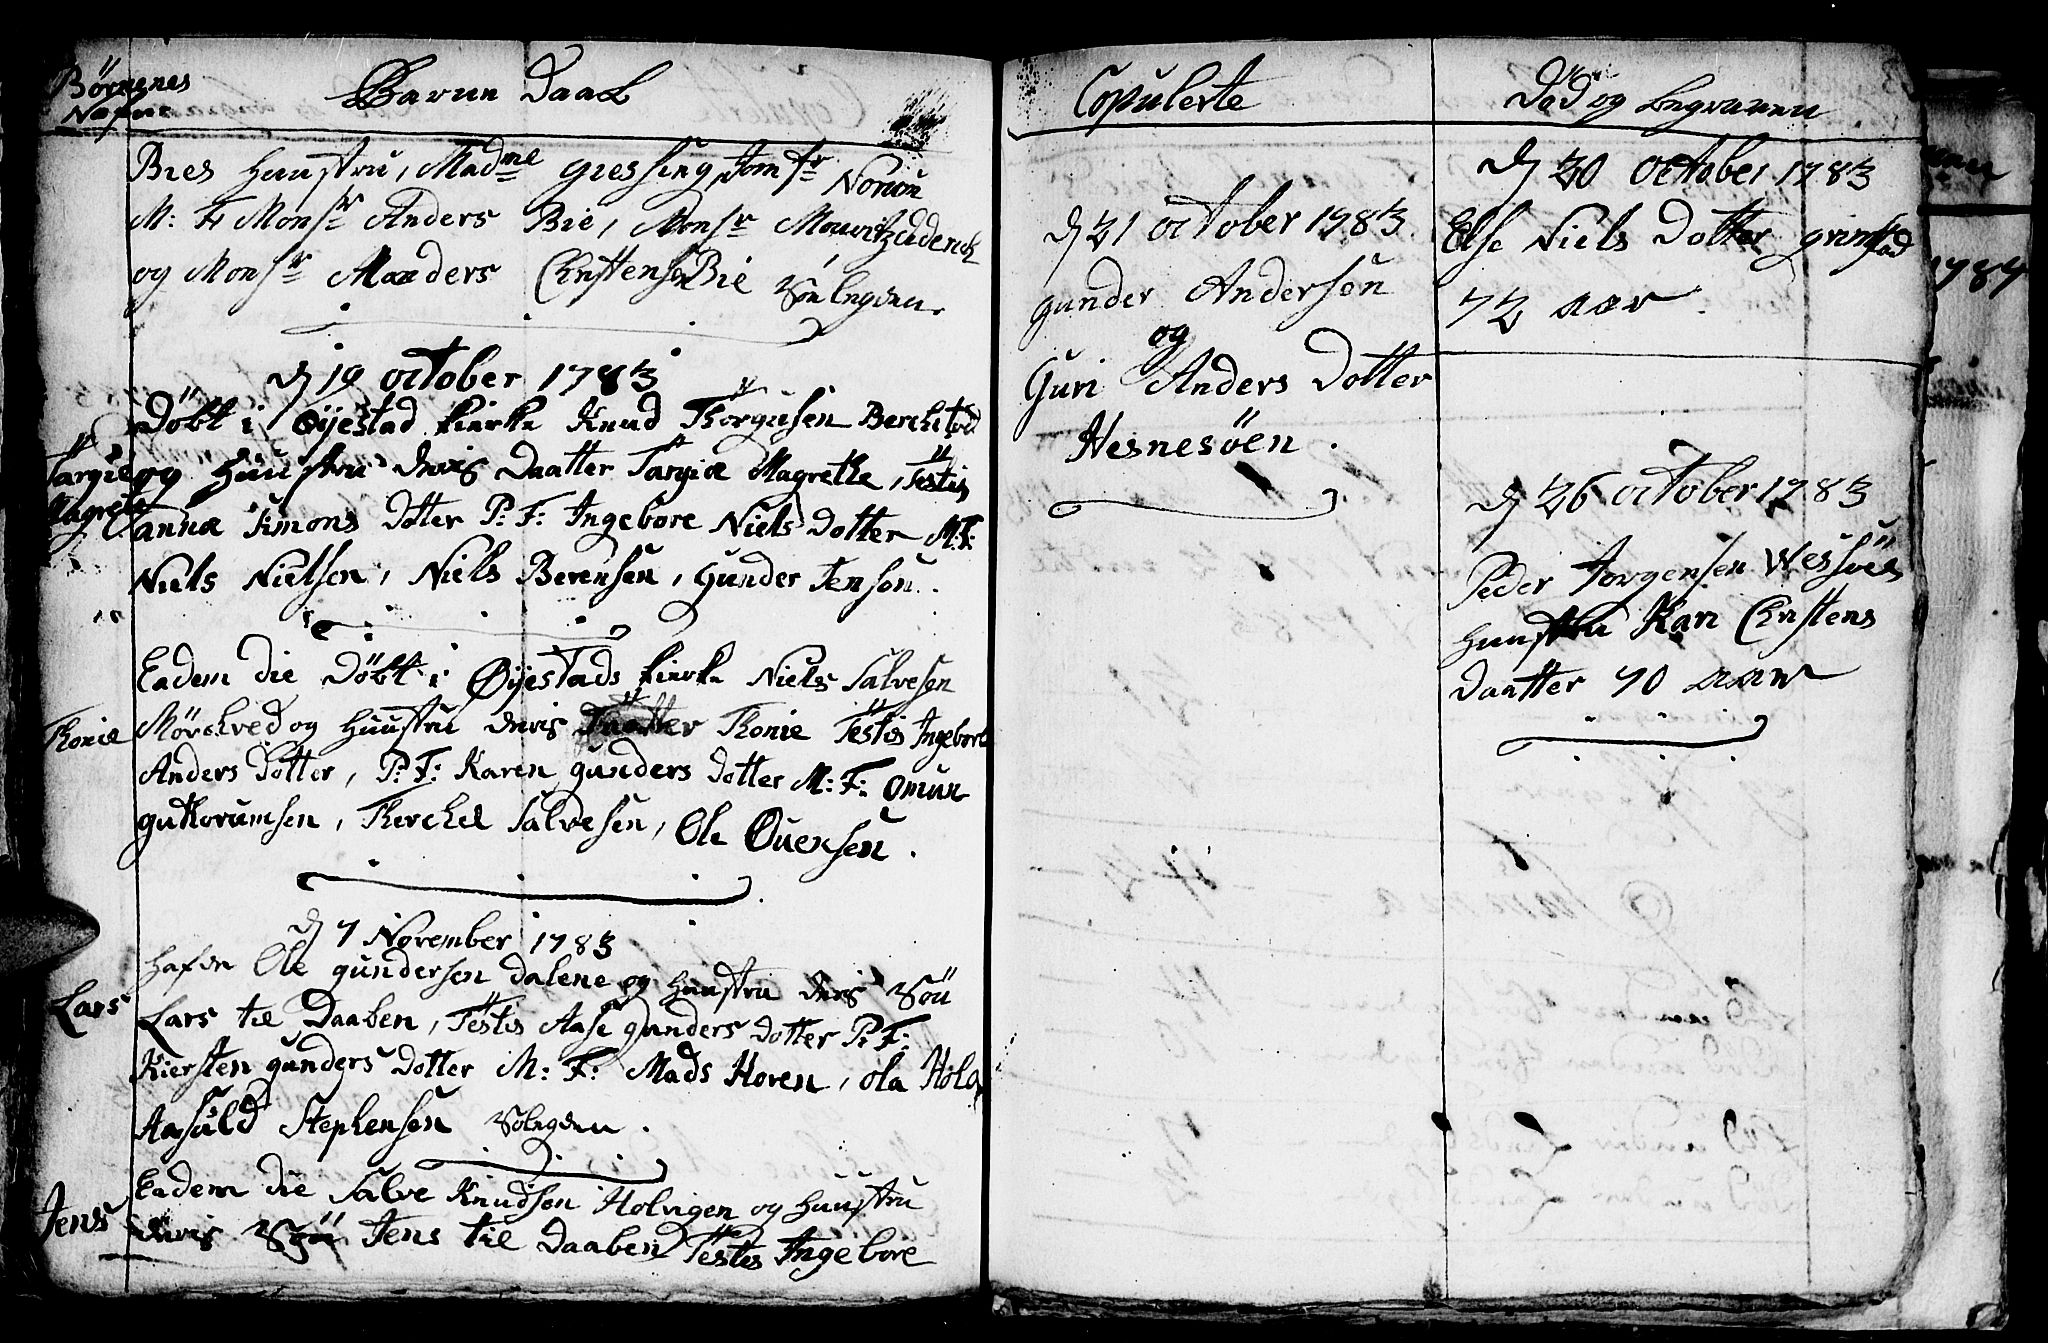 Börnenes
Nafne
Barne Daab
Bies Huustru, Madme Giessing, Jomfr Norum
M: F: Monsr Anders Bie, Monsr Mouritz
og Monsr Anders Christensen Bie Sölegden.
d 19 October 1783
Döbt i Øÿestad kierke Knud Thorgusen Berchetved
Targie Magrete
og Huustru deris Daatter Targie Magrethe, Testis
Canna Simons Dotter P: F: Ingebore Niels Dotter M: F:
Niels Nielsen, Niels Berensen, Gunder Jensen.
Eadem die Döbt i Øÿestads kierke Niels Salvesen
Thonie
Mörchved og Huustru deris Daatter Thonie Testis Ingebore
Anders Dotter, P: F: Karen gunders Dotter M: F: Omun
guthorumsen, Therchel Salvesen, Ole Ouensen.
d 7 November 1783
Hafde Ole gundersen Dalene og Huustru deris Sön
Lars
Lars til Daaben, Testis Aase gunders Dotter P: F:
Kiersten gunders Dotter M: F: Mads Hoven, ola Hola
Aasuld Stephensen Sölegden.
Eadem die Salve Knudsen Holvigen og Huustru
Jens
deris Sön Jens til Daaben Testis Ingebore
Copulerte
d 21 October 1783
gunder Andersen
og
Guri Anders Dotter
Hesnesöen.
Död og begraven
d 20 October 1783
Else Niels Dotter grimstad
72 aar.
d 26 October 1783
Peder Jorgensen Wessöes
Huustru Kari Christens
Daatter 70 aar
1784